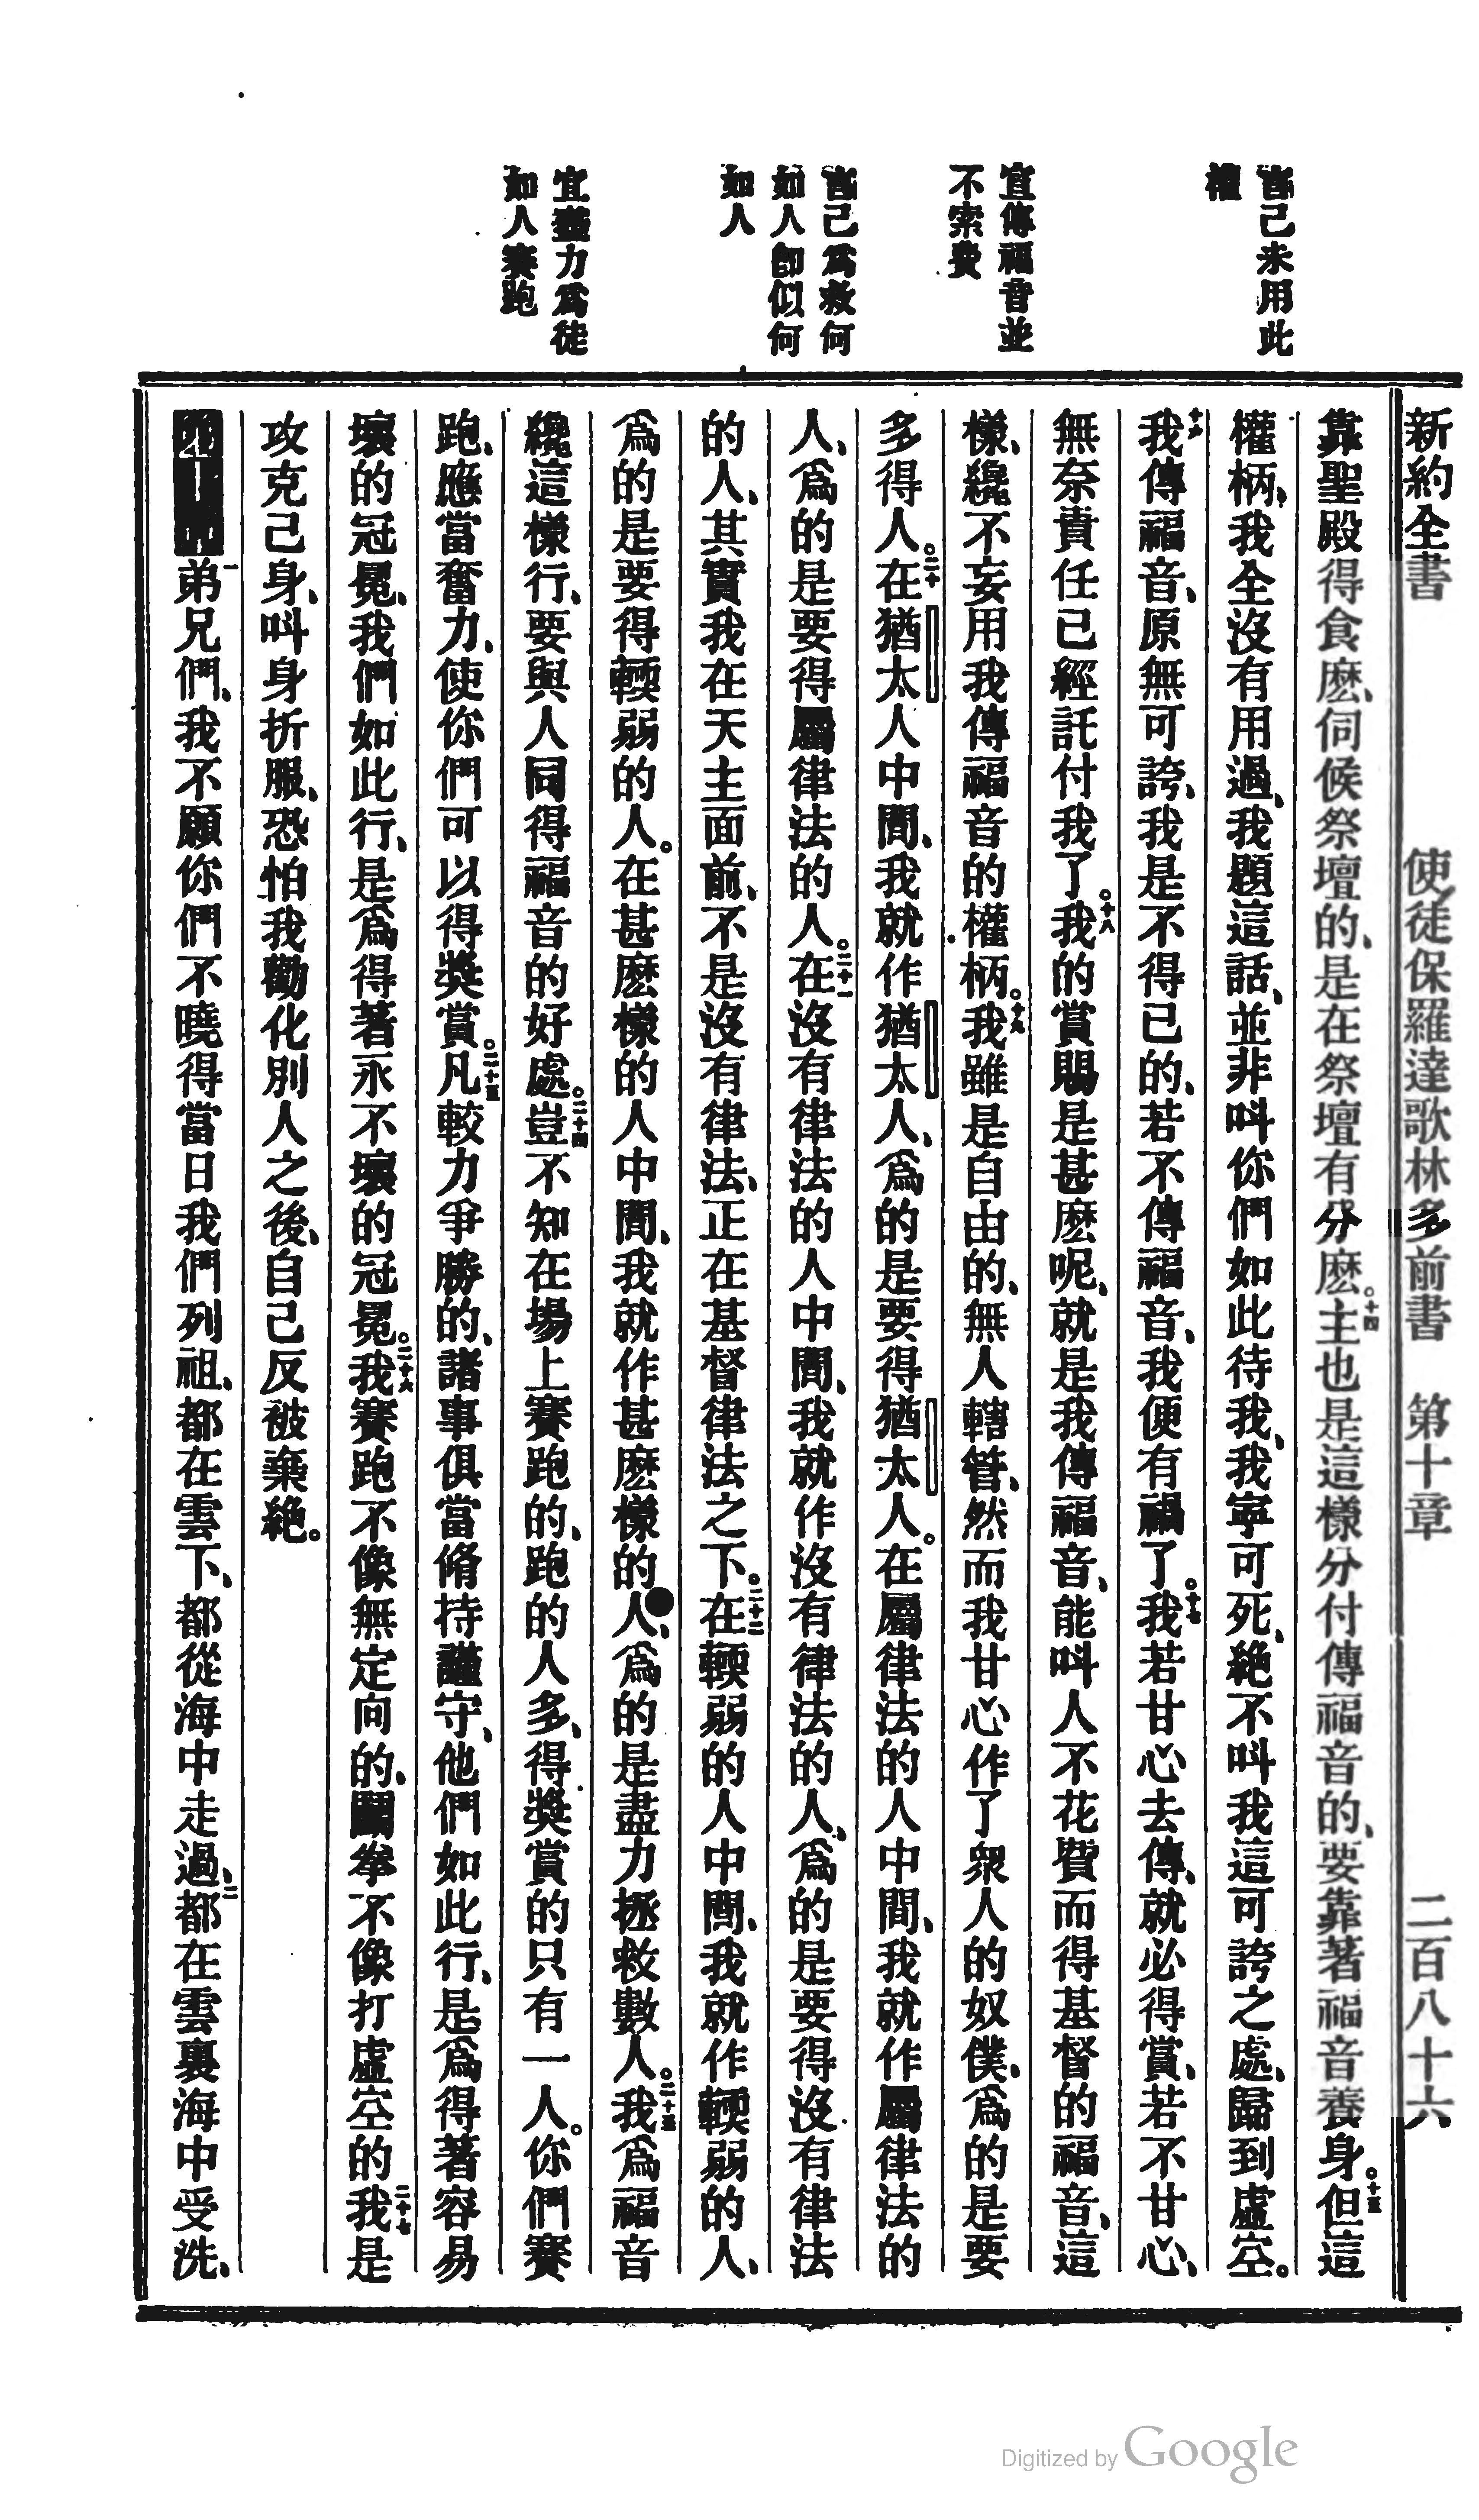 新約全書 使徒保羅達歌林多前書 第十章 二百八十六
言己未用此
權
宣傳福音並
不索費
言己爲救何
如人卽似何
如人
宜盡力爲徒
如人賽跑
靠聖殿得食麽、伺候祭壇的、是在祭壇有分麽。十四主也是這樣分付傳福音的、要靠著福音養身。十五但這
權柄、我全沒有用過、我題這話、並非叫你們如此待我、我寧可死、絕不叫我這可誇之處、歸到虛空。
十六我傳福音、原無可誇、我是不得已的、若不傳福音、我便有禍了。十七我若甘心去傳、就必得賞、若不甘心、
無奈責任已經託付我了。十八我的賞賜是甚麽呢、就是我傳福音、能叫人不花費而得基督的福音、這
樣、纔不妄用我傳福音的權柄。十九我雖是自由的、無人轄管、然而我甘心作了衆人的奴僕、爲的是要
多得人。二十在猶太人中間、我就作猶太人、爲的是要得猶太人。在屬律法的人中間、我就作屬律法的
人、爲的是要得屬律法的人。二十一在沒有律法的人中間、我就作沒有律法的人、爲的是要得沒有律法
的人、其實我在天主面前、不是沒有律法、正在基督律法之下。二十二在輭弱的人中間、我就作輭弱的人、
爲的是要得輭弱的人。在甚麽樣的人中間、我就作甚麽樣的人、爲的是盡力拯救數人。二十三我爲福音
纔這樣行、要與人同得福音的好處。二十四豈不知在場上賽跑的、跑的人多、得獎賞的只有一人。你們賽
跑、應當奮力、使你們可以得獎賞。二十五凡較力爭勝的、諸事俱當脩持謹守、他們如此行、是爲得著容易
壞的冠冕、我們如此行、是爲得著永不壞的冠冕。二十六我賽跑不像無定向的、鬭拳不像打虛空的、二十七我是
攻克己身、叫身折服、恐怕我勸化別人之後、自己反被棄絕。
一弟兄們、我不願你們不曉得當日我們列祖、都在雲下、都從海中走過、二都在雲裏海中受洗、
Digitized by Google